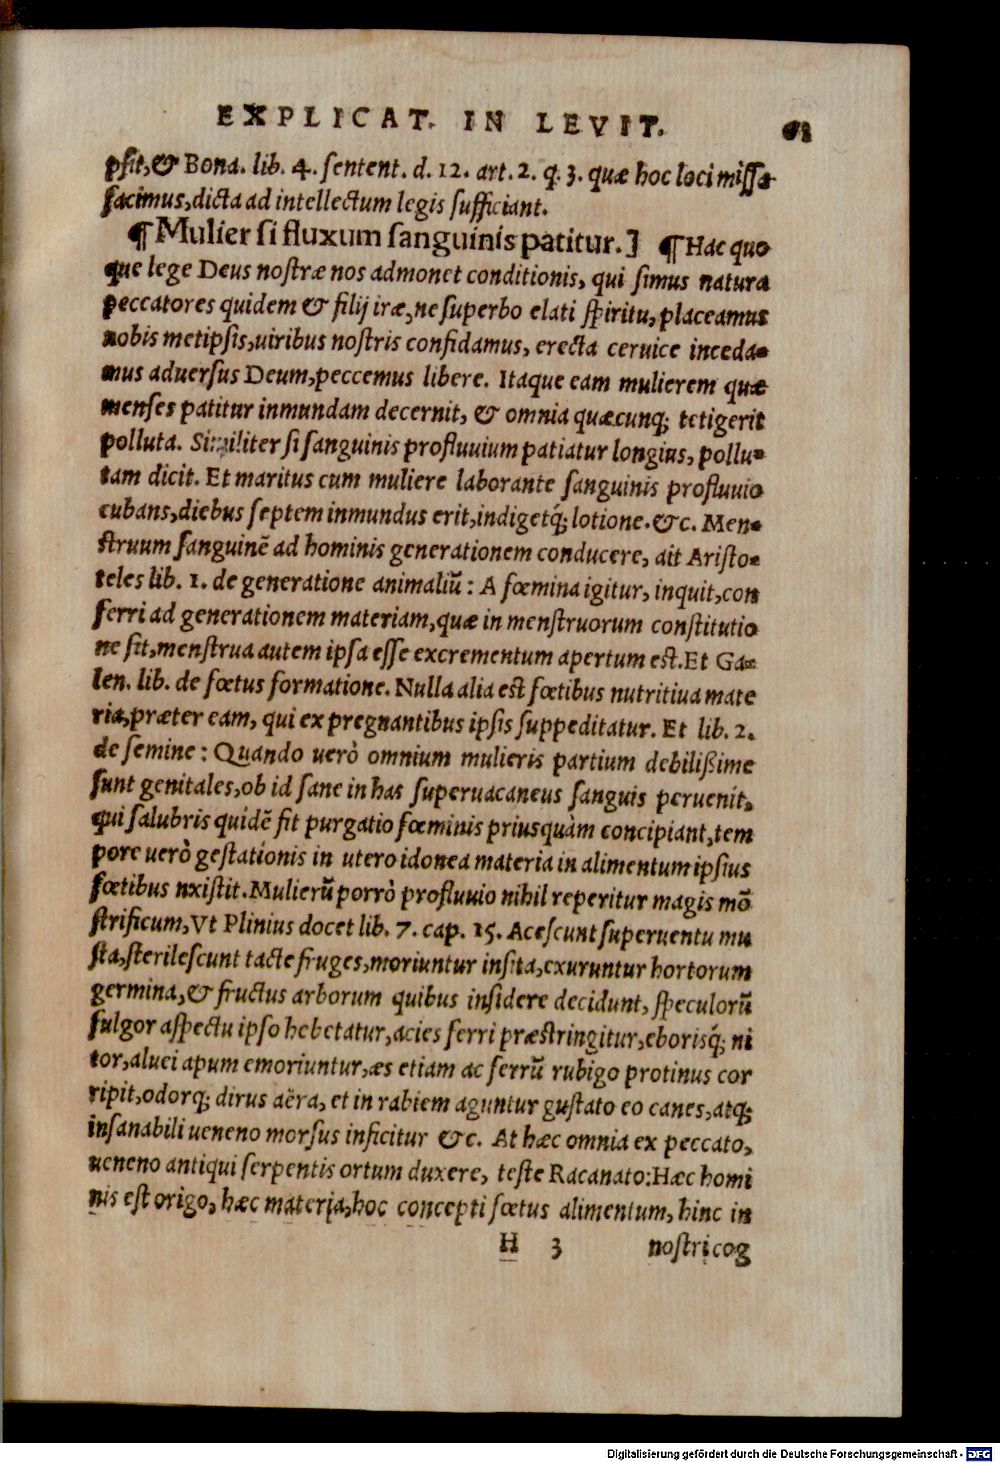 EXPLICAT. IN LEVIT. 61
pſit, & Bona. lib. 4. ſentent. d. 12. art. 2. q. 3. quæ hoc loci miſſa
facimus, dicta ad intellectum legis ſufficiant.
¶ Mulier ſi fluxum ſanguinis patitur.] ¶ Hac quo
que lege Deus noſtræ nos admonet conditionis, qui ſimus natura
peccatores quidem & filij iræ, ne ſuperbo elati ſpiritu, placeamus
nobis metipſis, uiribus noſtris confidamus, erecta ceruice inceda-
mus aduerſus Deum, peccemus libere. Itaque eam mulierem quæ
menſes patitur inmundam decernit, & omnia quæcunq; tetigerit
polluta. Similiter ſi ſanguinis profluuium patiatur longius, pollu-
tam dicit. Et maritus cum muliere laborante ſanguinis profluuio
cubans, diebus ſeptem inmundus erit, indigetq́; lotione. &c. Men-
ſtruum ſanguinē ad hominis generationem conducere, ait Ariſto-
teles lib. 1. de generatione animaliū: A fœmina igitur, inquit, con
ferri ad generationem materiam, quæ in menſtruorum conſtitutio
ne ſit, menſtrua autem ipſa eſſe excrementum apertum eſt. Et Ga-
len. lib. de fœtus formatione. Nulla alia eſt fœtibus nutritiua mate
ria, præter eam, qui ex pregnantibus ipſis ſuppeditatur. Et lib. 2.
de ſemine: Quando uerò omnium mulieris partium debilißime
ſunt genitales, ob id ſane in has ſuperuacaneus ſanguis peruenit,
qui ſalubris quidē fit purgatio fœminis priusquàm concipiant, tem
pore uerò geſtationis in utero idonea materia in alimentum ipſius
fœtibus nxiſtit. Mulierū porrò profluuio nihil reperitur magis mō
ſtrificum, Vt Plinius docet lib. 7. cap. 15. Aceſcunt ſuperuentu mu
ſta, ſterileſcunt tacte fruges, moriuntur inſita, exuruntur hortorum
germina, & fructus arborum quibus inſidere decidunt, ſpeculorū
fulgor aſpectu ipſo hebetatur, acies ferri præſtringitur, eborisq́; ni
tor, aluei apum emoriuntur, æs etiam ac ferrū rubigo protinus cor
ripit, odorq; dirus aëra, et in rabiem aguntur guſtato eo canes, atq;
inſanabili ueneno morſus inficitur &c. At hæc omnia ex peccato,
ueneno antiqui ſerpentis ortum duxere, teſte Racanato: Hæc homi
nis eſt origo, hæc materia, hoc concepti fœtus alimentum, hinc in
H 3 noſtri cog
Digitalisierung gefördert durch die Deutsche Forschungsgemeinschaft - DFG